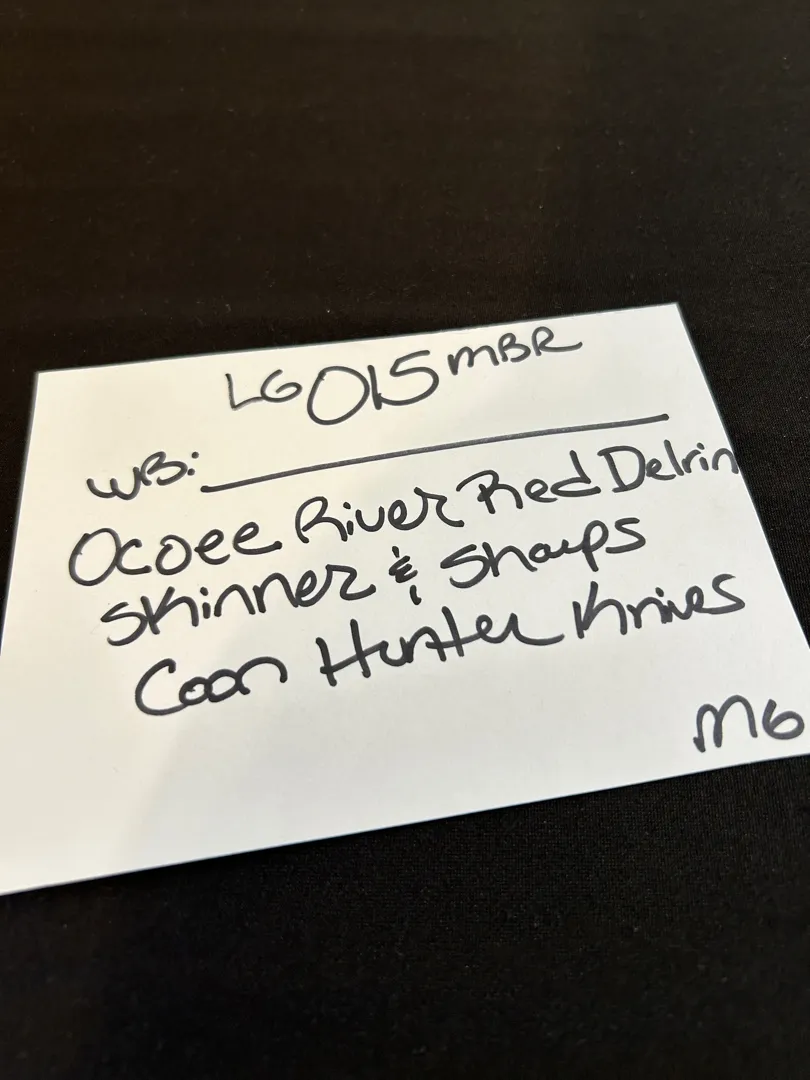 LG 015 MBR
WB:
Ocoee River Red Delrin
Skinner & Sharps
Coon Hunter Knives
MG